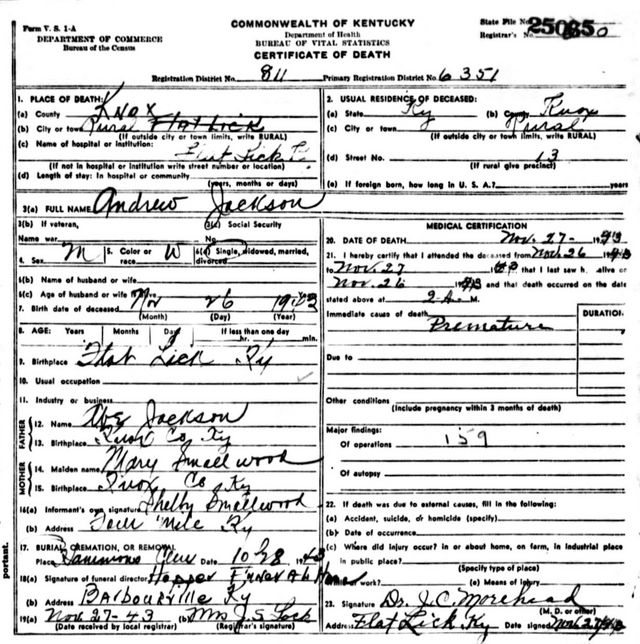 Form V. S. 1-A
DEPARTMENT OF COMMERCE
Bureau of the Census
COMMONWEALTH OF KENTUCKY
Department of Health
BUREAU OF VITAL STATISTICS
CERTIFICATE OF DEATH
State File No.
Registrar's No.
Registration District No. 811 Primary Registration District No. 6351
1. PLACE OF DEATH:
(a) County Knox
(b) City or town Rural Flat Lick
(If outside city or town limits, write RURAL)
(c) Name of hospital or institution:
Flat Lick
(If not in hospital or institution write street number or location)
(d) Length of stay: In hospital or community
(years, months or days)
2. USUAL RESIDENCE OF DECEASED:
(a) State Ky (b) County Knox
(c) City or town Rural
(If outside city or town limits, write RURAL)
(d) Street No. 13
(If rural give precinct)
(e) If foreign born, how long in U. S. A.? years
3(a) FULL NAME Andrew Jackson
3(b) If veteran,
Name war
3(c) Social Security
No.
4. Sex M 5. Color or race W 6(a) Single, widowed, married, divorced
6(b) Name of husband or wife
6(c) Age of husband or wife
7. Birth date of deceased Nov 26 1943
(Month) (Day) (Year)
8. AGE: Years Months Days If less than one day
hr. min.
9. Birthplace Flat Lick Ky
10. Usual occupation
11. Industry or business
FATHER
12. Name Jackson
13. Birthplace Knox Co Ky
MOTHER
14. Maiden name Mary Smallwood
15. Birthplace Knox Co Ky
16(a) Informant's own signature Shelby Smallwood
(b) Address Four Mile Ky
17. BURIAL, CREMATION, OR REMOVAL
Place Sammons Date 10 28 1943
18(a) Signature of funeral director Hopper Funeral Home
(b) Address Barbourville Ky
19(a) Nov-27-43 (b) Mrs J. S. Lock
(Date received by local registrar) (Registrar's signature)
MEDICAL CERTIFICATION
20. DATE OF DEATH Nov. 27- 1943
21. I hereby certify that I attended the deceased from Nov. 26 1943
to Nov. 27 1943 that I last saw h alive on
Nov. 26 1943 and that death occurred on the date
stated above at 2 A. M.
Immediate cause of death
Premature
DURATION
Due to
Other conditions
(Include pregnancy within 3 months of death)
Major findings:
Of operations 159
Of autopsy
22. If death was due to external causes, fill in the following:
(a) Accident, suicide, or homicide (specify)
(b) Date of occurrence
(c) Where did injury occur? in or about home, on farm, in industrial place
in public place?
(Specify type of place)
work? (e) Means of injury
23. Signature Dr. J. C. Morehead
(M. D. or other)
Address Flat Lick Ky Date signed Nov. 27/43
portant.